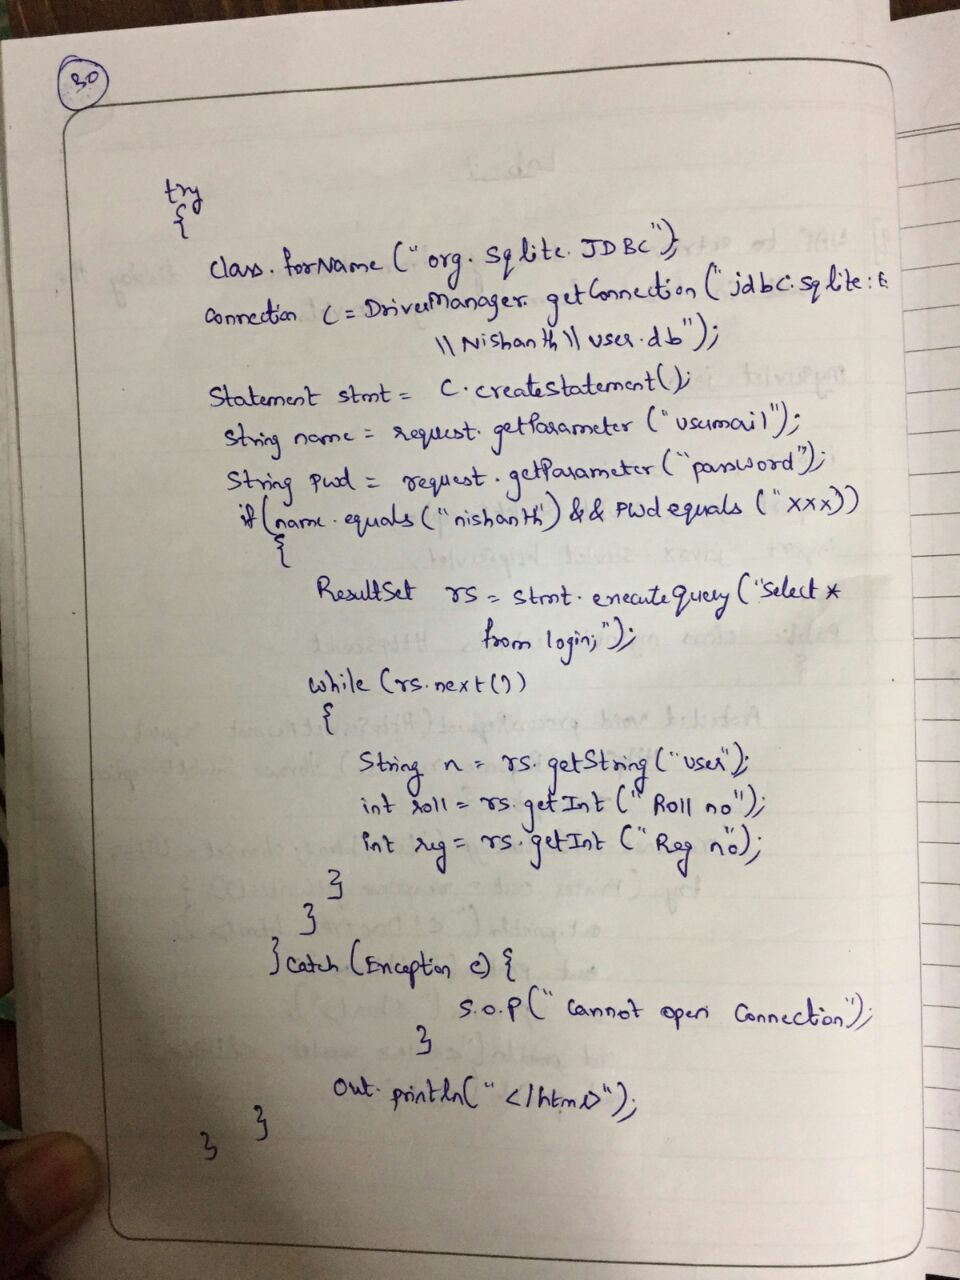 30
try
{
class.forName ("org.sqlite.JDBC");
Connection C = DriverManager.getConnection ("jdbc:sqlite:E
\\Nishanth\\user.db");
Statement stmt = C.createStatement();
String name = request.getParameter ("usermail");
String pwd = request.getParameter ("password");
if (name.equals ("nishanth") && Pwd equals ("xxx))
{
ResultSet rs = stmt.executeQuery ("Select *
from login;");
while (rs.next())
{
String n = rs.getString ("user");
int roll = rs.getInt ("Roll no");
int reg = rs.getInt ("Reg no");
}
}
} catch (Exception e) {
S.O.P (" Cannot open Connection");
}
Out.println(" </html>");
}
}